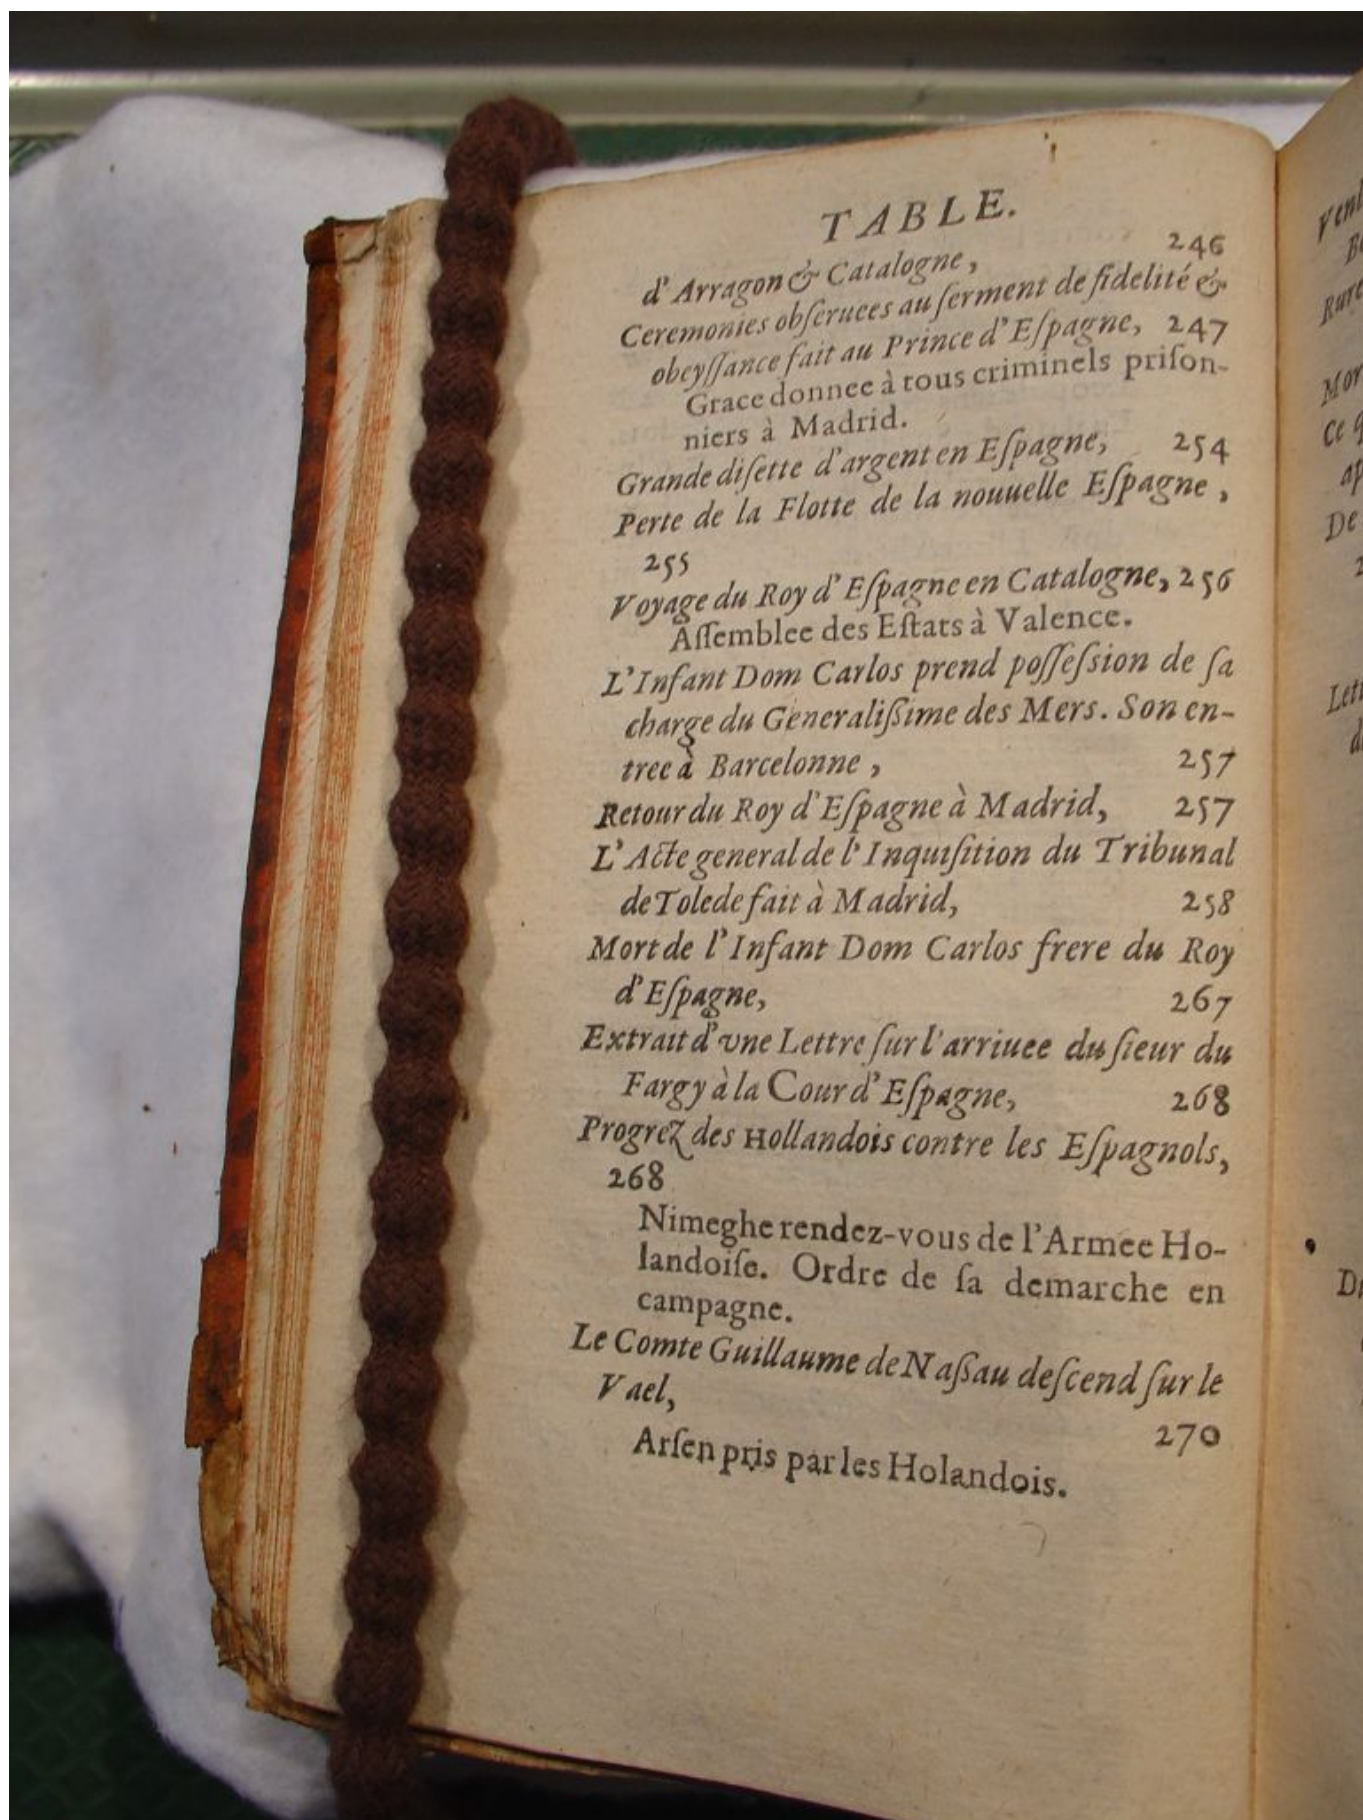 TABLE.
d'Arragon & Catalogne, 246
Ceremonies obſeruees au ſerment de fidelité &
obeyſſance fait au Prince d'Eſpagne, 247
Grace donnee à tous criminels priſon-
niers à Madrid.
Grande diſette d'argent en Eſpagne, 254
Perte de la Flotte de la nouuelle Eſpagne,
255
Voyage du Roy d'Eſpagne en Catalogne, 256
Aſſemblee des Eſtats à Valence.
L'Infant Dom Carlos prend poſſeſsion de ſa
charge du Generaliſsime des Mers. Son en-
tree à Barcelonne, 257
Retour du Roy d'Eſpagne à Madrid, 257
L'Acte general de l'Inquiſition du Tribunal
de Tolede fait à Madrid, 258
Mort de l'Infant Dom Carlos frere du Roy
d'Eſpagne, 267
Extrait d'vne Lettre ſur l'arriuee du ſieur du
Fargy à la Cour d'Eſpagne, 268
Progrez des Hollandois contre les Eſpagnols,
268
Nimeghe rendez-vous de l'Armee Ho-
landoiſe. Ordre de ſa demarche en
campagne.
Le Comte Guillaume de Naſsau deſcend ſur le
Vael, 270
Arſen pris par les Holandois.
De